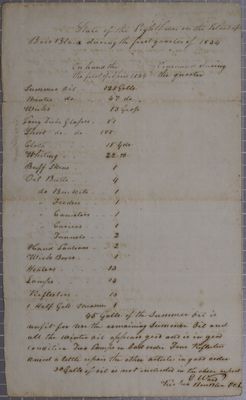 State of the Light house on the Island of
Bois Blanc during the first quarter of 1834
On hand the Expended during
the quarter
Summer oil 128 Galls.
Winter do 47 do
Wicks 13 Gross
Long Tube Glasses
Short do do
Cloth
Whiting 22 lb
Buff Skins 1
Oil Butts 4
do Buckets 1
" Feeders 1
" Canisters 1
" Carriers 1
" Funnels 2
Hand Lantern 2
Wick Boxes 1
Heaters 13
Lamps 14
Reflectors 13
1 Half Gall. Measure 1
45 Galls of the Summer oil is
unfit for use the remaining Summer oil and
all the winter oil appears good and is in good
condition Two Lamps in bad order Four Reflectors
a little repair the other articles in good order
30 Galls of oil is not included in the above report
E. Ward